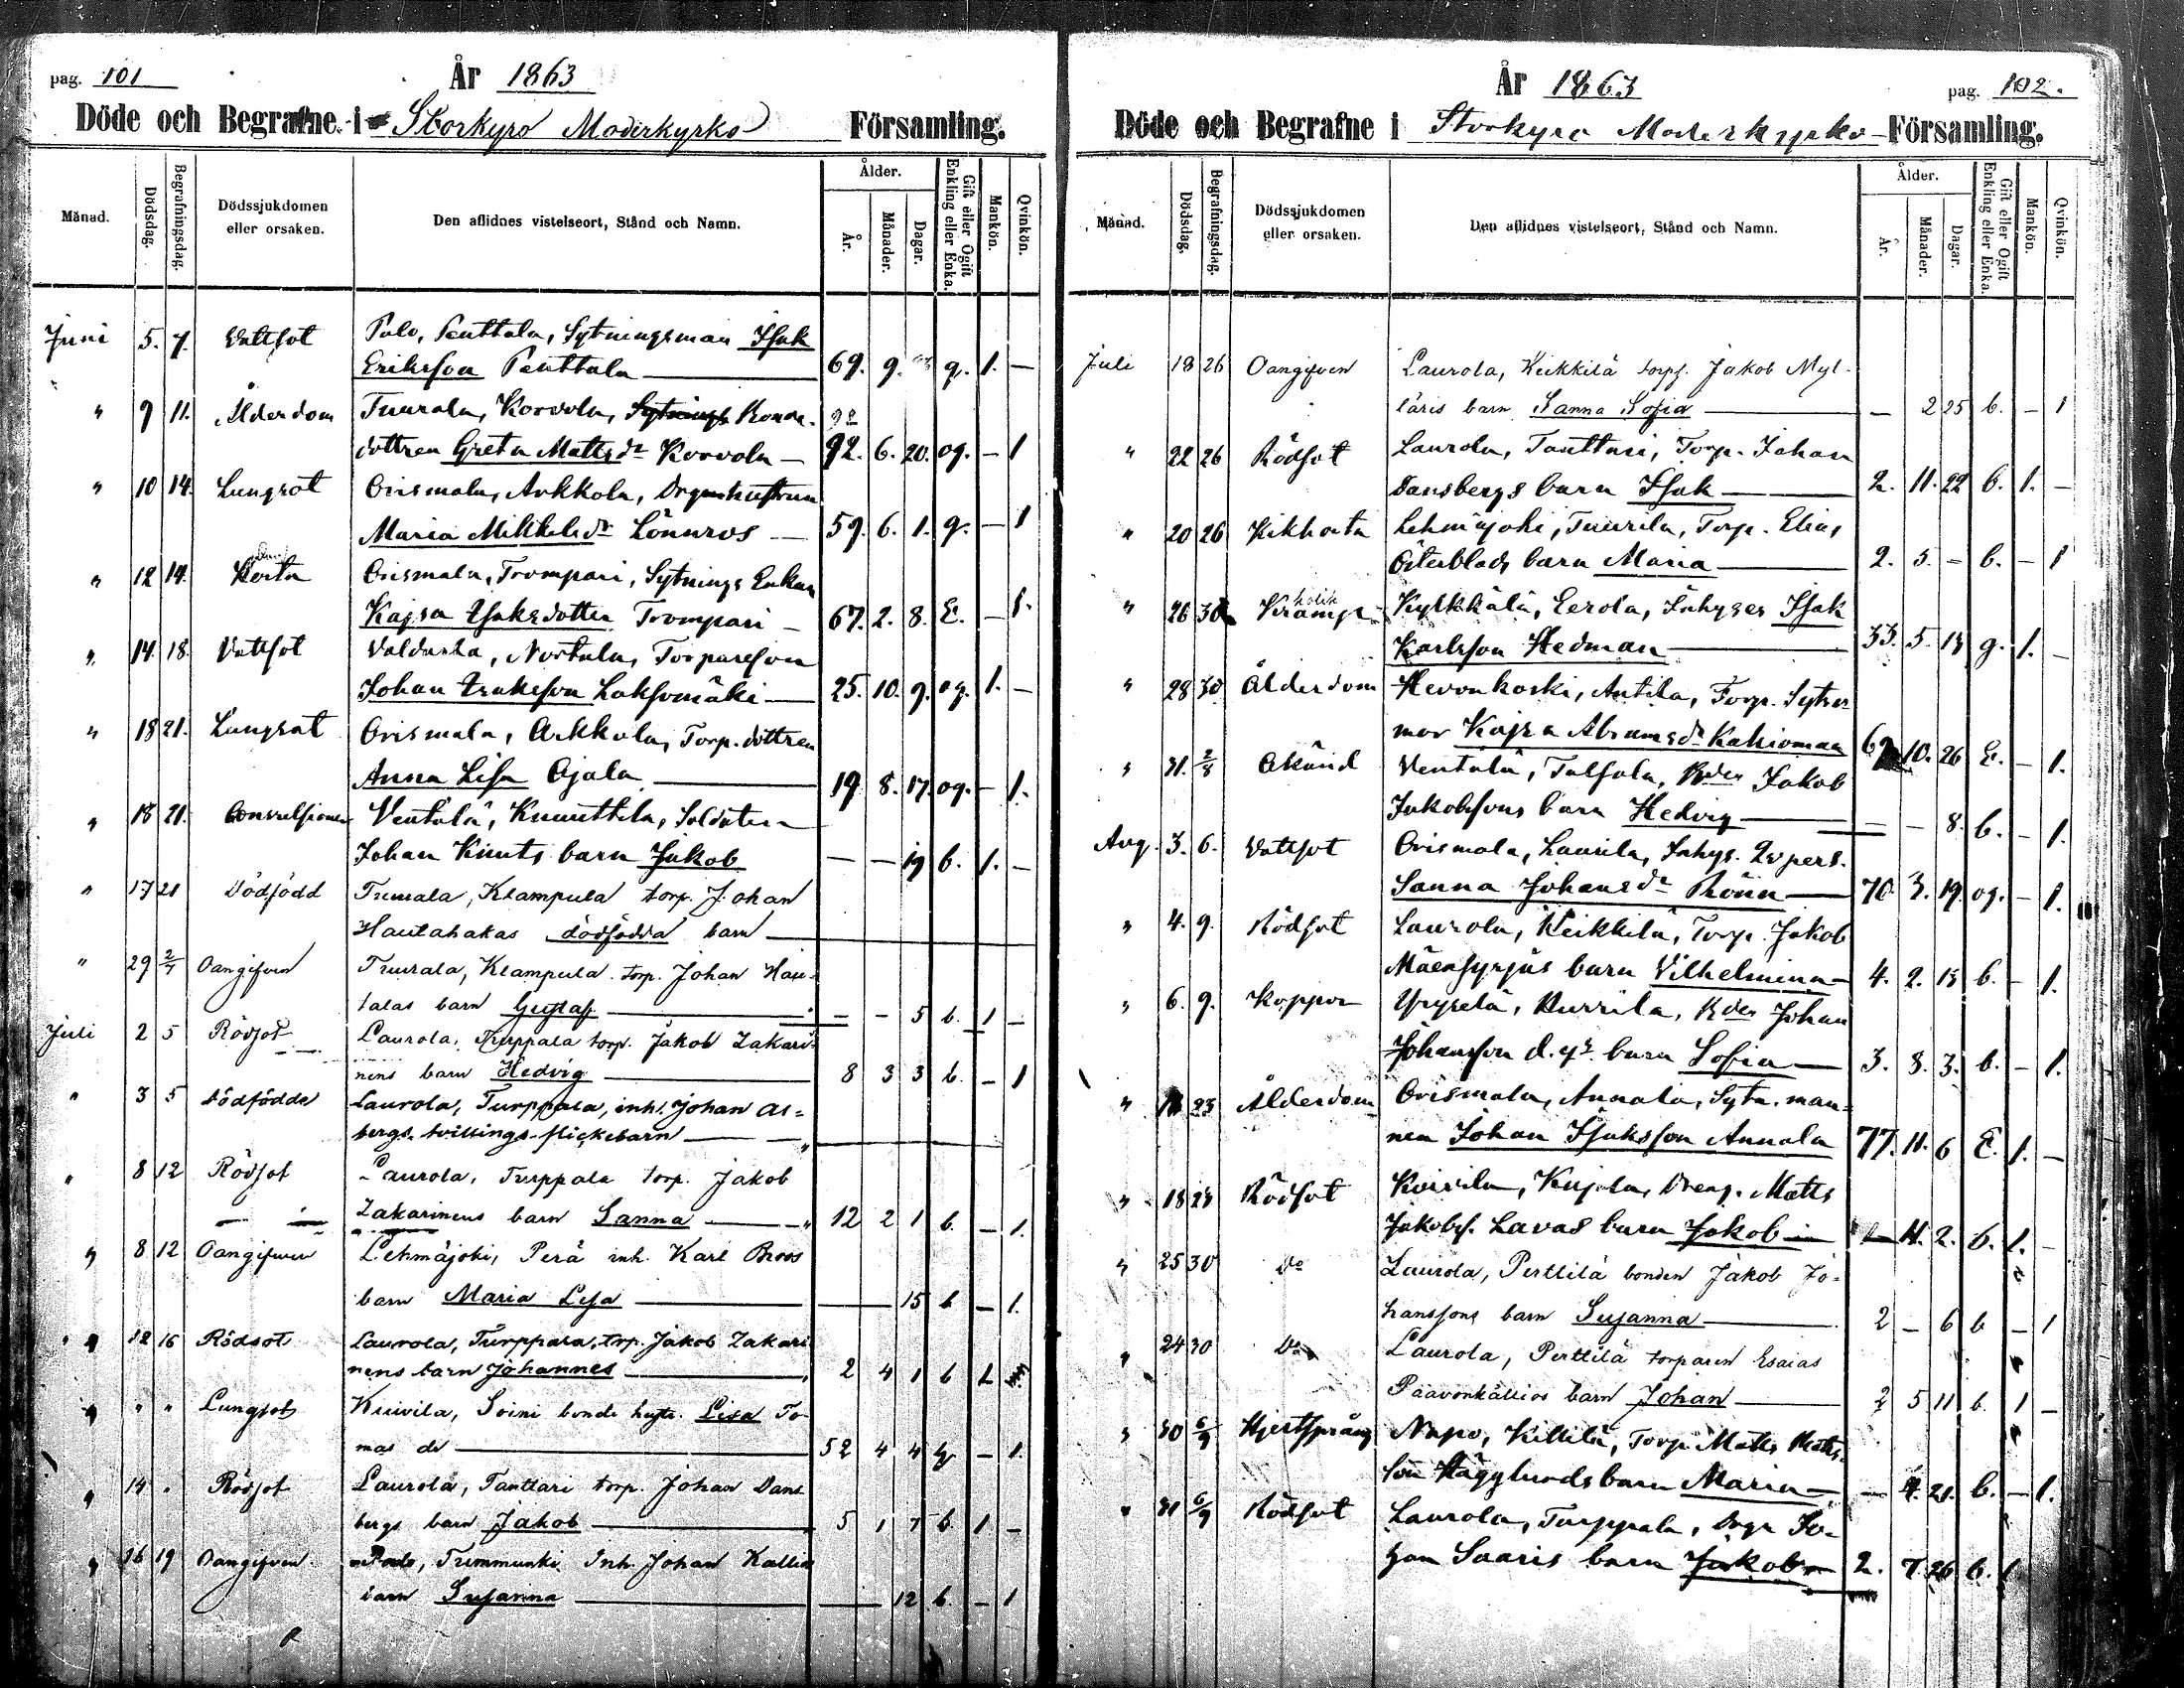 pag. 101
År 1863
Döde och Begrafne i Storkyro Moderkyrko Församling.
Månad.
Dödsdag.
Begrafningsdag.
Dödssjukdomen eller orsaken.
Den aflidnes vistelseort, Stånd och Namn.
Ålder.
År.
Månader.
Dagar.
Gift eller Ogift Enkling eller Enka.
Mankön.
Qvinkön.
Juni 5. 7. Vattsot Palo, Penttala, Sytningsman Isak
Eriksson Penttala 69. 9. g. 1. —
" 9 11. Ålderdom Tuurala, Korvola, Sytnings Bonde-
dottren Greta Mattsdr Korvola — 92. 6. 20. og. — 1
" 10 14. Lungsot Orismala, Arkkola, Drgenhustrun
Maria Mikkelsdr Lönnros — 59. 6. 1. g. — 1
" 12 14. Orismala, Trompari, Sytnings Enkan
Kajsa Isaksdotter Trompari — 67. 2. 8. E. — 1.
" 14. 18. Vattsot Valdarla, Nortala, Torpareson
Johan Isaksson Laksomäki — 25. 10. 9. og. 1. —
" 18 21. Lungsot Orismala, Arkkola, Torp. dottren
Anna Lisa Ojala — 19 8. 17. og. — 1.
" 18 21. Convulsioner Ventälä, Knuuttila, Soldaten
Johan Knuts barn Jakob — — 19 b. 1. —
" 17 21 Dödfödd Tuurala, Klampula torp. Johan
Hautahakas dödfödda barn —
" 29 2/7 Oangifven Tuurala, Klampula torp. Johan Hau-
talas barn Gustaf — — — 5 b. 1 —
Juli 2 5 Rödsot Laurola, Turppala torp. Jakob Zakari-
nens barn Hedvig — 8 3 3 b. — 1
" 3 5 Dödfödda Laurola, Turppala, inh. Johan As-
bergs tvillings-flickebarn —
" 8 12 Rödsot Laurola, Turppala torp. Jakob
Zakarinens barn Sanna — 12 2 1 b. — 1.
" 8 12 Oangifven Lehmäjoki, Perä inh. Karl Broos
barn Maria Lisa — 15 b. — 1.
" 12 16 Rödsot Laurola, Turppala, trp. Jakob Zakari
nens barn Johannes — 2 4 1 b 1
" " " Lungsot Kuivila, Soini bonde hustr. Lisa To-
mas dr — 52 4 4 g — 1.
" 14 . Rödsot Laurola, Tanttari torp. Johan Dans
bergs barn Jakob — 5 1 7 b. 1 —
" 16 19 Oangifven Palo, Trummunki Inh. Johan Kallio
barn Susanna — 12 b. — 1
År 1863
pag. 102.
Döde och Begrafne i Storkyro Moderkyrko-Församling.
Månad.
Dödsdag.
Begrafningsdag.
Dödssjukdomen eller orsaken.
Den aflidnes vistelseort, Stånd och Namn.
Ålder.
År.
Månader.
Dagar.
Gift eller Ogift Enkling eller Enka.
Mankön.
Qvinkön.
Juli 18 26 Oangifven Laurola, Keikkilä torp. Jakob Myl-
läris barn Sanna Sofia — — 2 25 b. — 1
" 22 26 Rödsot Laurola, Tanttari, Torp. Johan
Dansbergs barn Isak — 2. 11. 22 b. 1. —
" 20 26 Kikhosta Lehmäjoki, Tuurila, Torp. Elias
Österblads barn Maria — 2. 5. — b. — 1
" 26 30 Kramp kolik Kylkkälä, Eerola, Inhyses Isak
Karlsson Hedman — 33. 5. 13 g. 1. —
" 28 30 Ålderdom Hevonkoski, Antila, Torp. Sytn
mor Kajsa Abramsdr Kahiomaa 10. 26 E. — 1.
" 31. 2/8 Okänd Ventälä, Talsala, Bder Jakob
Jakobsons barn Hedvig — — — 8. b. — 1.
Aug. 3. 6. Vattsot Orismala, Laurila, Inhys. Qvpers.
Sanna Johansdr Rönn — 70. 3. 19. og. — 1.
" 4. 9. Rödsot Laurola, Keikkilä, Torp. Jakob
Mäensyrjäs barn Vilhelmina — 4. 2. 13 b. — 1.
" 6. 9. Koppor Yryselä, Hurrila, Bder Johan
Johansson d.yr. barn Sofia — 3. 8. 3. b. — 1.
" 23 Ålderdom Orismala, Annala, Sytn. man-
nen Johan Isaksson Annala 77. 11. 6 E. 1. —
" 18 23 Rödsot Kuivila, Kujala, Dreng. Matts
Jakobs. Lavas barn Jakob 11. 2. b. 1. —
" 25 30 Do Laurola, Perttilä bonden Jakob Jo-
hanssons barn Susanna — 2 — 6 b — 1
" 24 30 Do Laurola, Perttilä torparen Esaias
Paavonkallios barn Johan — 2 5 11 b. 1 —
" 30 6/9 Hjertsprång Napo, Killilä, Torp. Matts Matts-
son Hägglunds barn Maria — — 4. 21. b. — 1.
" 31 6/9 Rödsot Laurola, Turppala, Drgr Jo-
han Saaris barn Jakob 2. 7. 26 b. 1